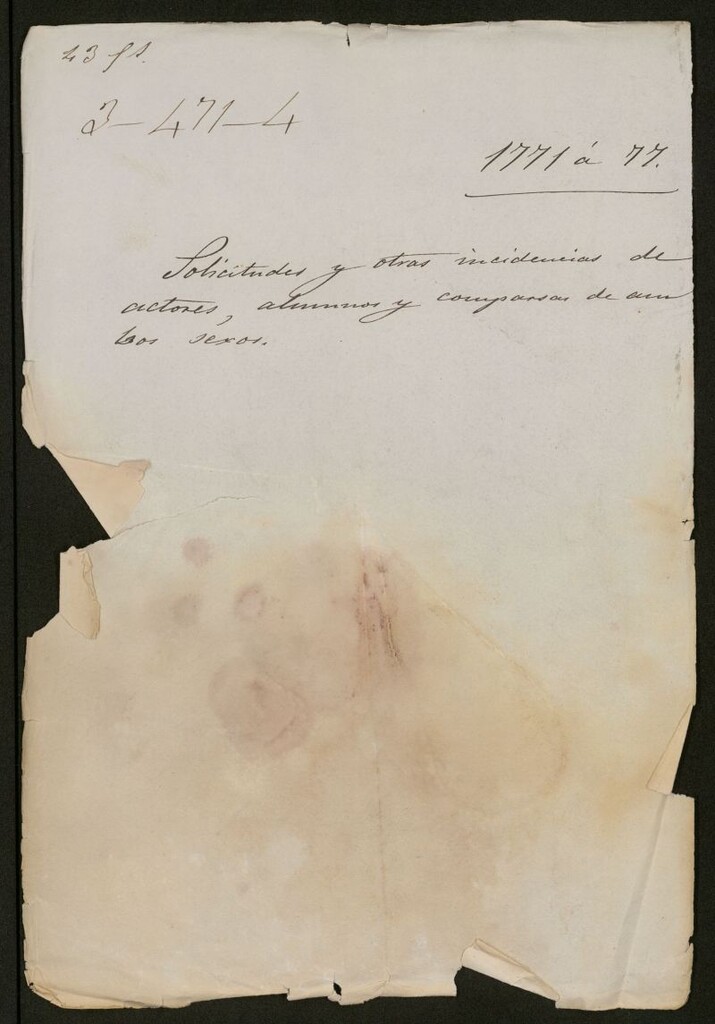 43 fs.
3-471-4
1771 á 77.
Solicitudes y otras incidencias de
actores, alumnos y comparsas de am
bos sexos.